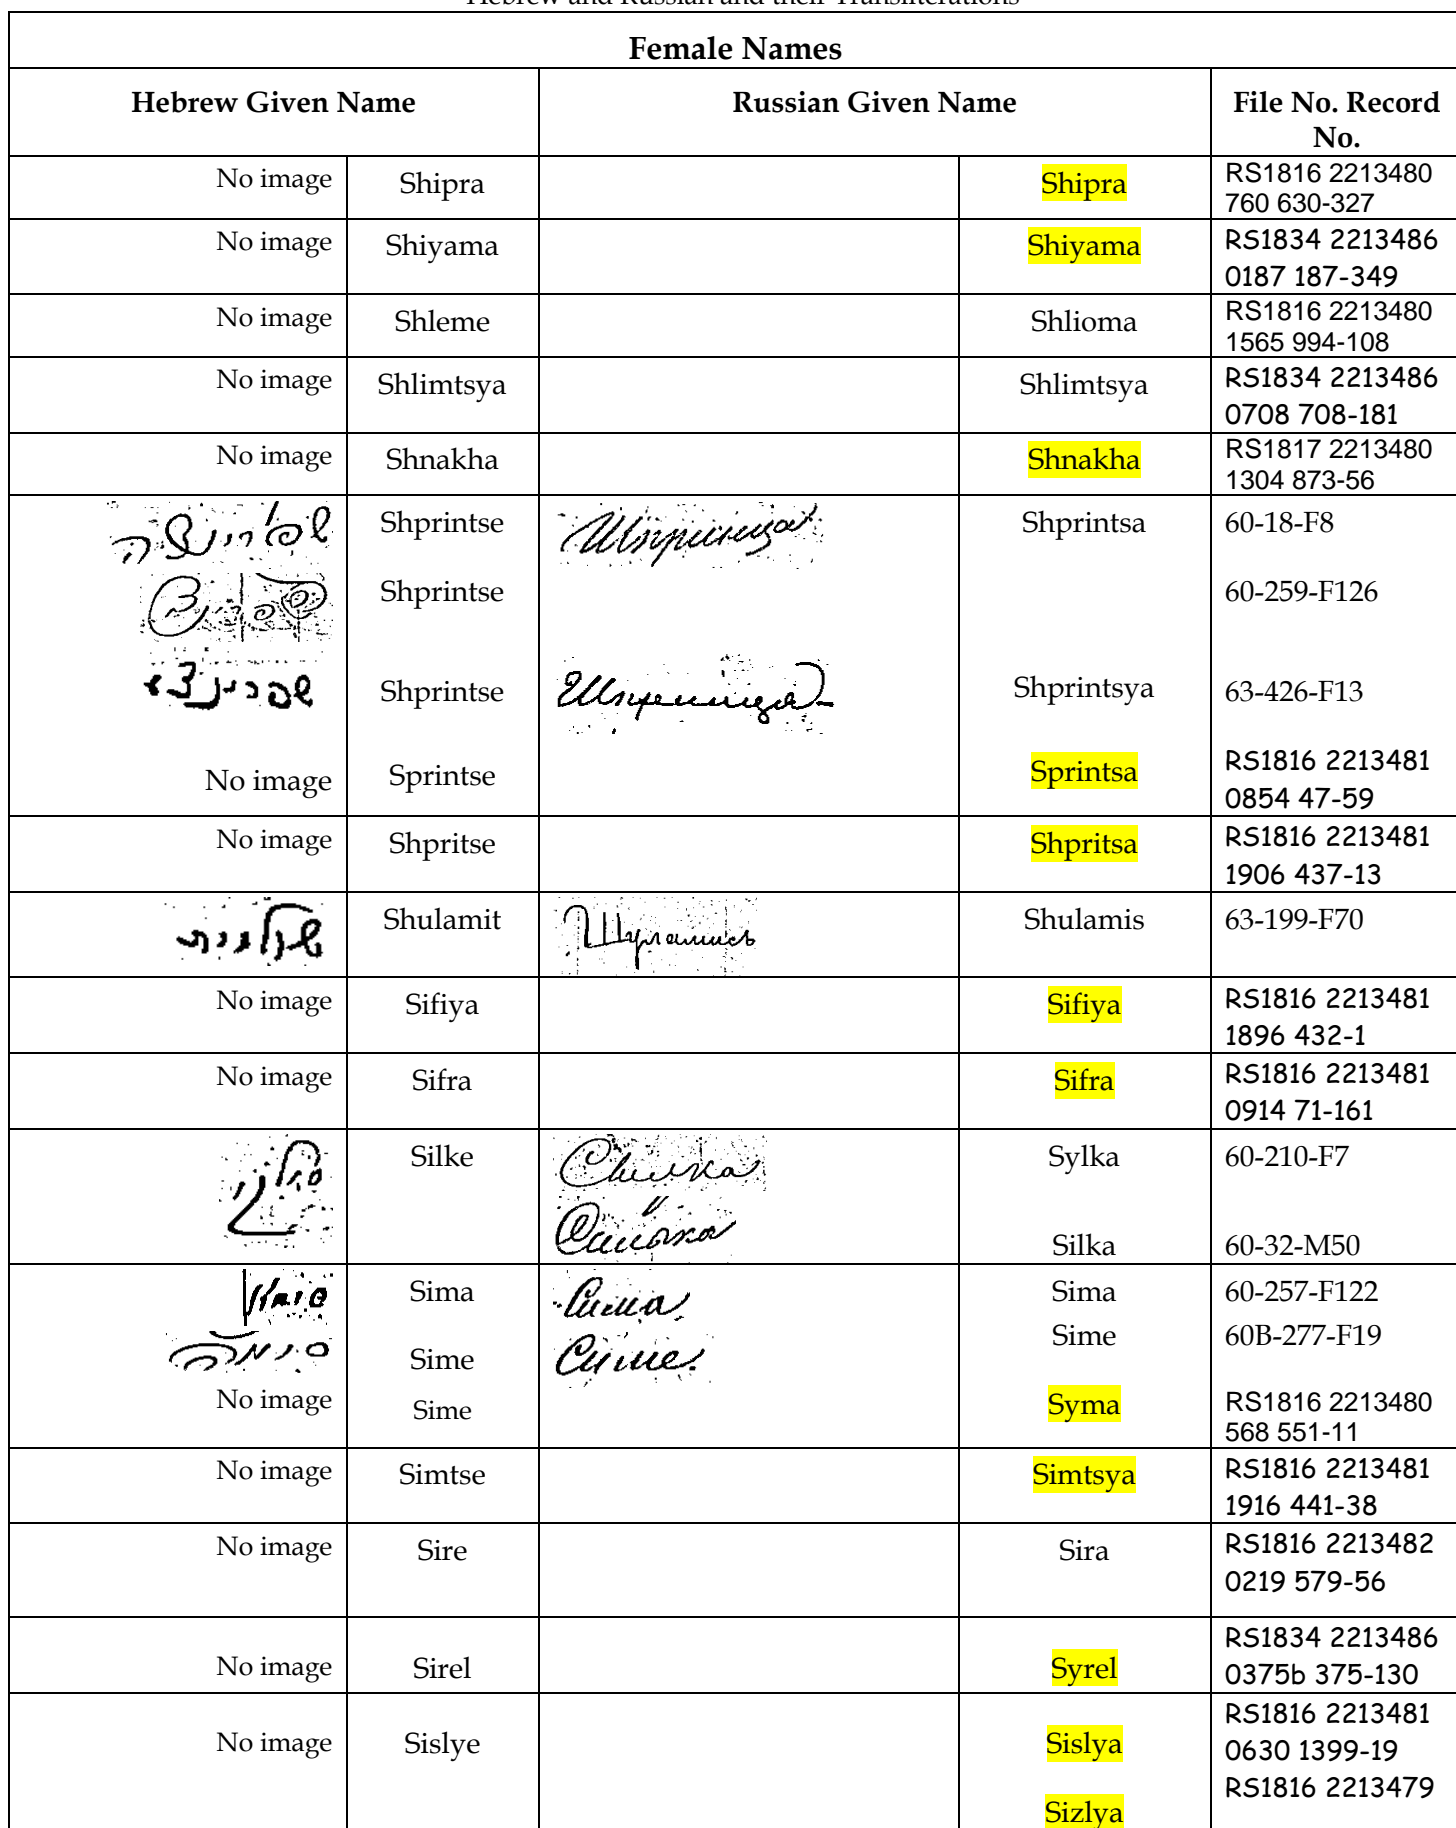 Hebrew and Russian and their Transliterations
Female Names
Hebrew Given Name Russian Given Name File No. Record No.
No image Shipra Shipra RS1816 2213480
760 630-327
No image Shiyama Shiyama RS1834 2213486
0187 187-349
No image Shleme Shlioma RS1816 2213480
1565 994-108
No image Shlimtsya Shlimtsya RS1834 2213486
0708 708-181
No image Shnakha Shnakha RS1817 2213480
1304 873-56
Shprintse Шпринца Shprintsa 60-18-F8
Shprintse 60-259-F126
שפרינצע Shprintse Shprintsya 63-426-F13
No image Sprintse Sprintsa RS1816 2213481
0854 47-59
No image Shpritse Shpritsa RS1816 2213481
1906 437-13
שולמית Shulamit Шуламись Shulamis 63-199-F70
No image Sifiya Sifiya RS1816 2213481
1896 432-1
No image Sifra Sifra RS1816 2213481
0914 71-161
Silke Сылка Sylka 60-210-F7
Силька Silka 60-32-M50
סימא Sima Сима Sima 60-257-F122
סימה Sime Симе. Sime 60B-277-F19
No image Sime Syma RS1816 2213480
568 551-11
No image Simtse Simtsya RS1816 2213481
1916 441-38
No image Sire Sira RS1816 2213482
0219 579-56
No image Sirel Syrel RS1834 2213486
0375b 375-130
No image Sislye Sislya RS1816 2213481
0630 1399-19
Sizlya RS1816 2213479